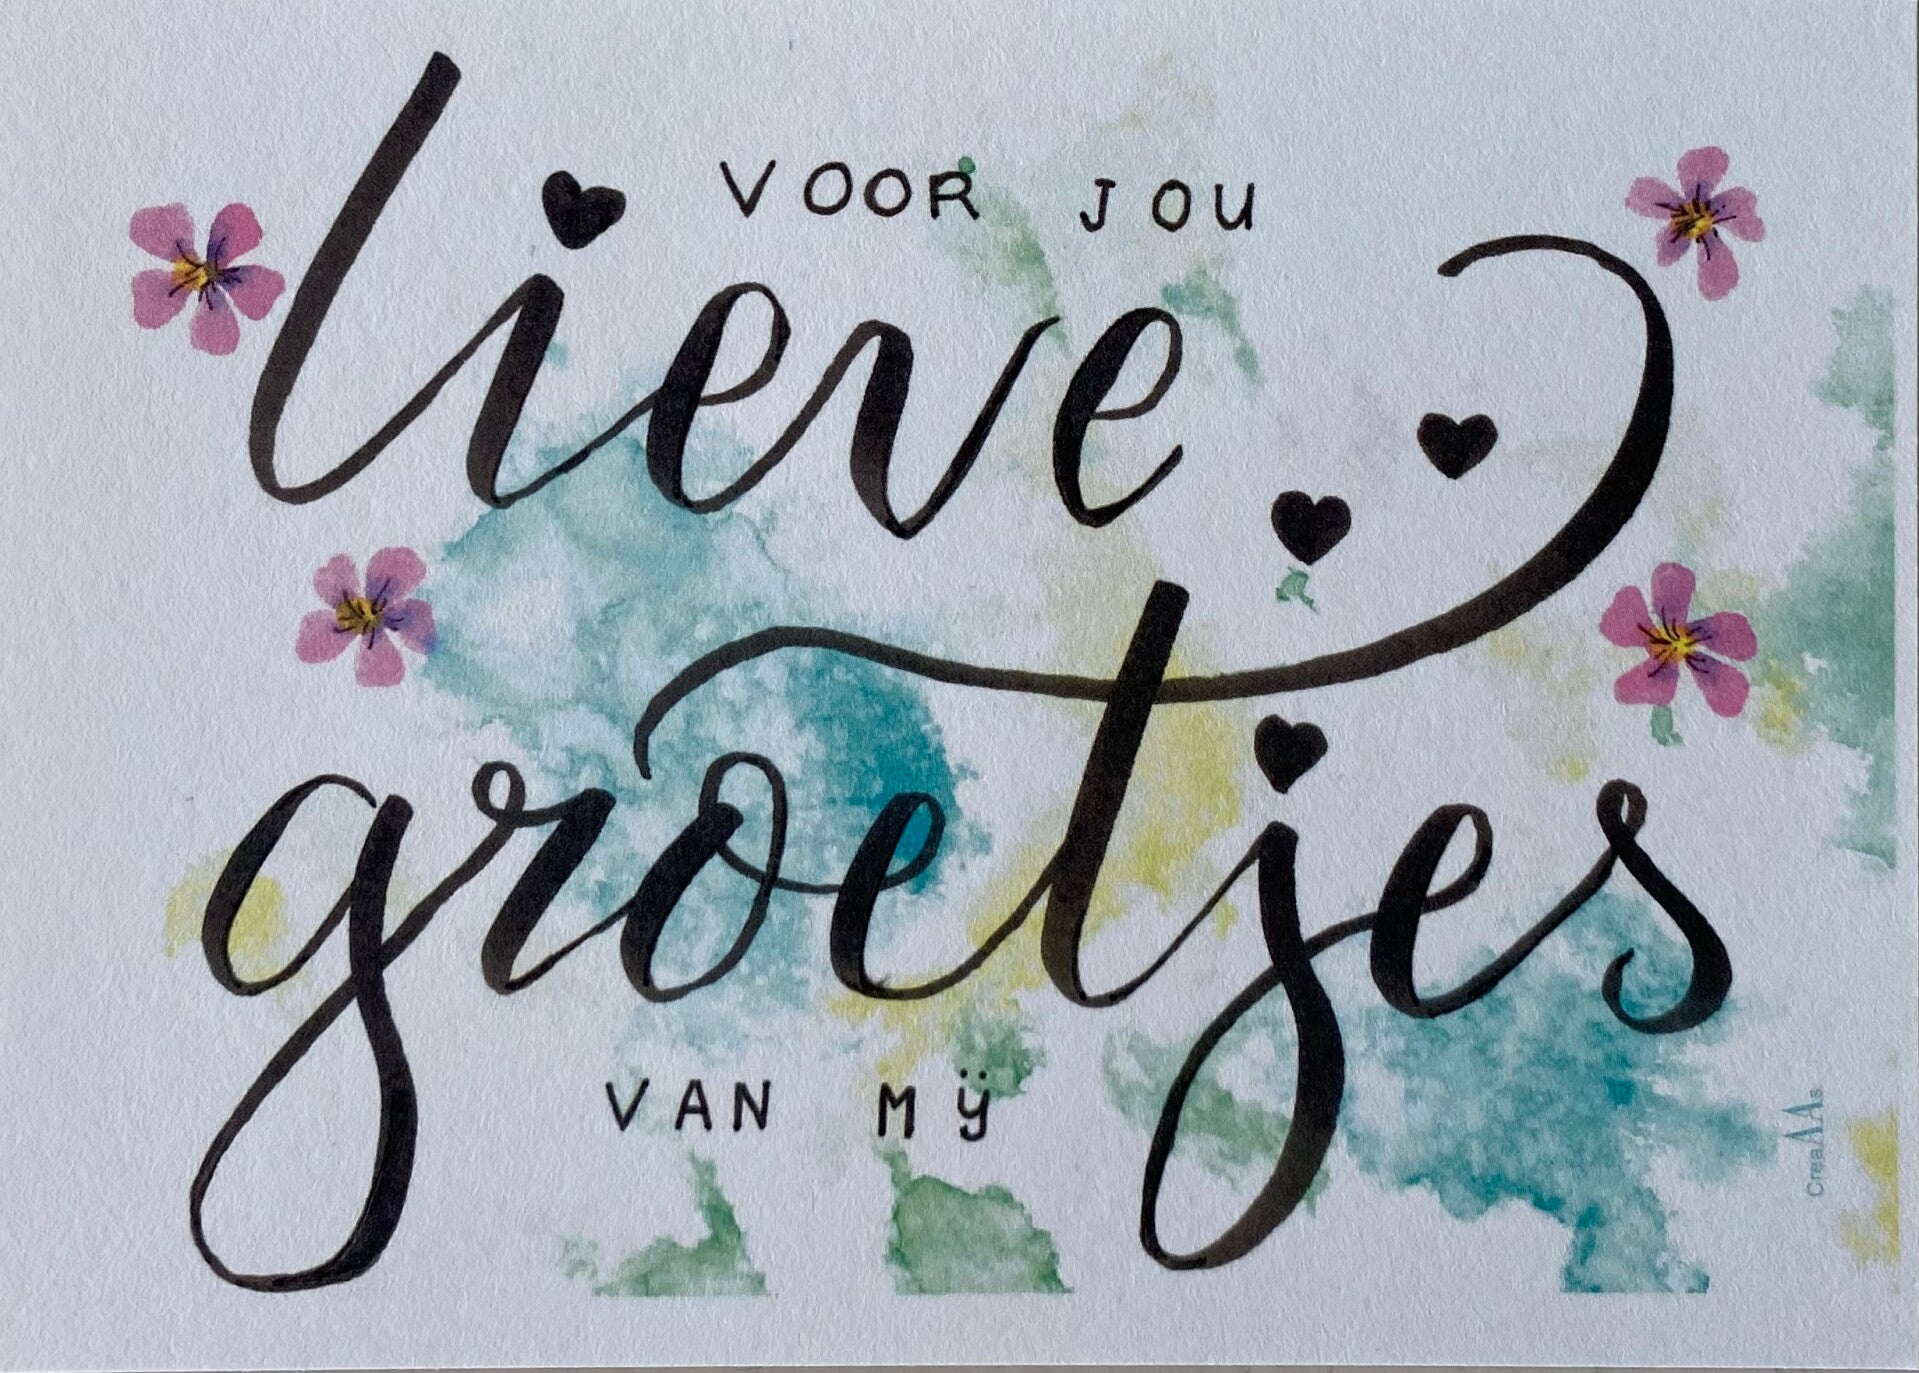 VOOR JOU
lieve
groetjes
VAN Mÿ
CreaAAs